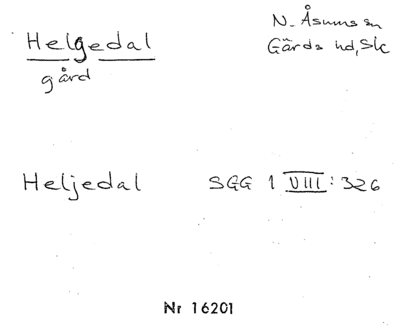 Helgedal
gård
N. Åsums sn
Gärds hd, Sk
Heljedal
SGG 1 VIII: 326
Nr 16201